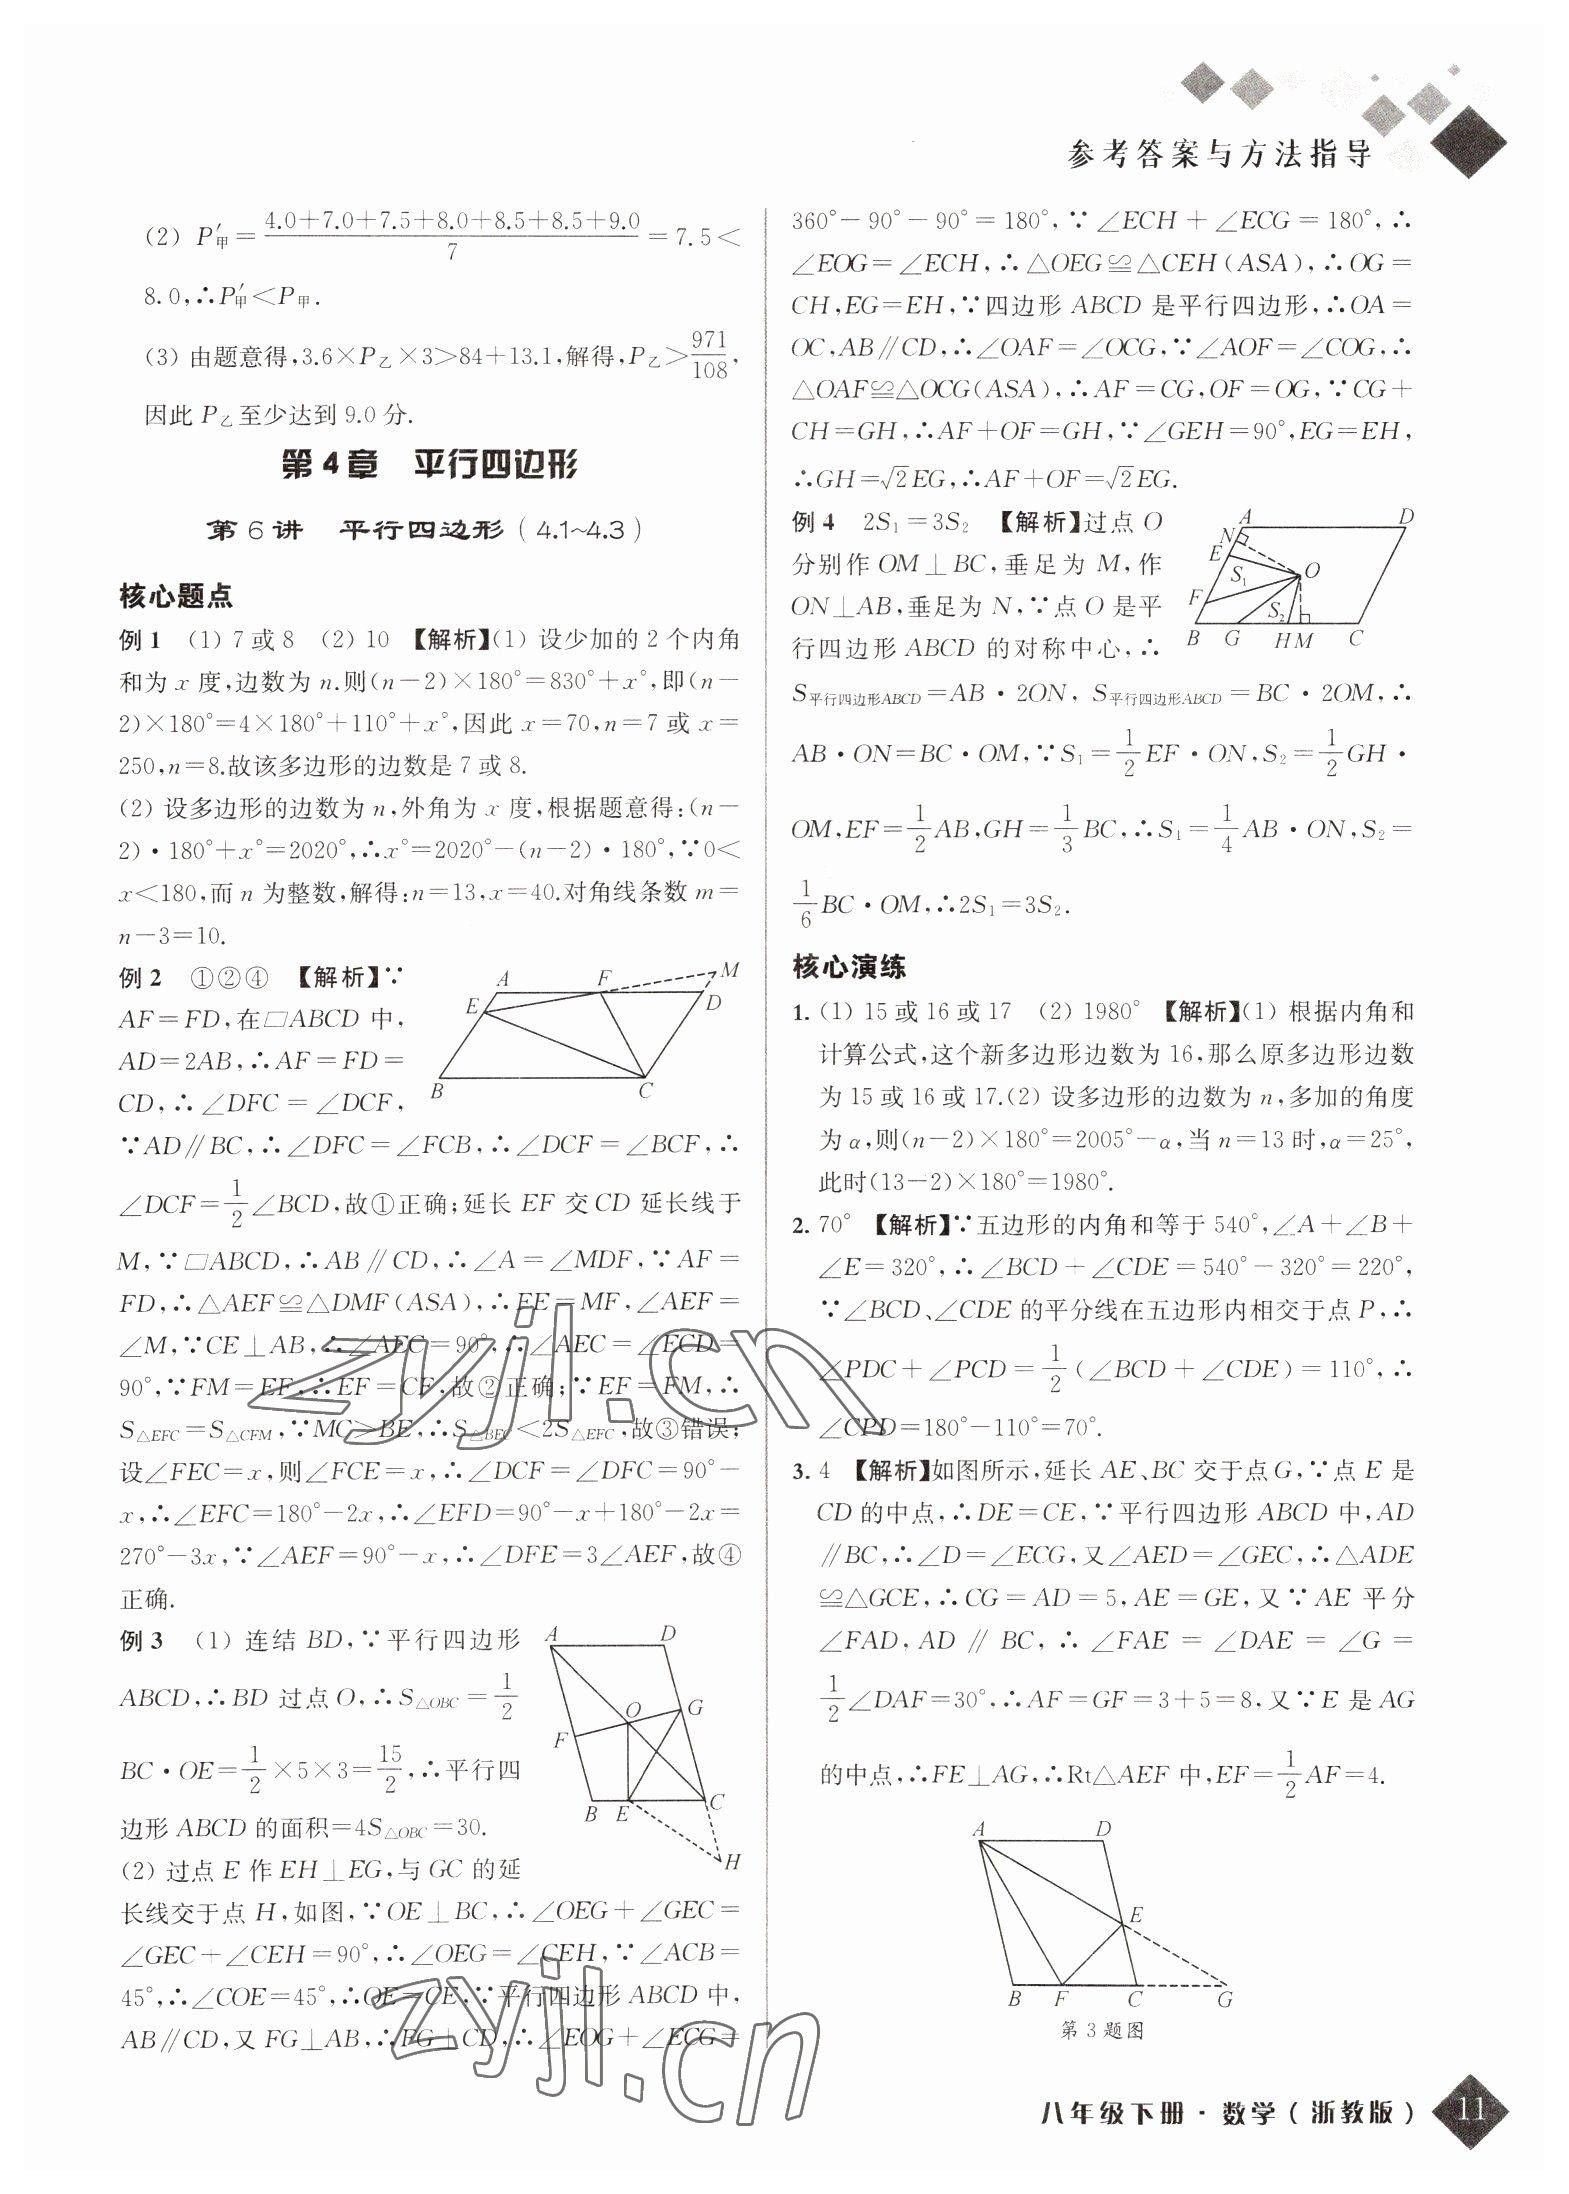 参考答案与方法指导
(2) P′甲=(4.0+7.0+7.5+8.0+8.5+8.5+9.0)/7=7.5<
8.0,∴P′甲<P甲.
(3) 由题意得,3.6×P乙×3>84+13.1,解得,P乙>971/108,
因此 P乙至少达到 9.0 分.
第 4 章 平行四边形
第 6 讲 平行四边形(4.1~4.3)
核心题点
例 1 (1) 7 或 8 (2) 10 【解析】(1) 设少加的 2 个内角
和为 x 度,边数为 n.则(n-2)×180°=830°+x°,即(n-
2)×180°=4×180°+110°+x°,因此 x=70,n=7 或 x=
250,n=8.故该多边形的边数是 7 或 8.
(2) 设多边形的边数为 n,外角为 x 度,根据题意得:(n-
2)·180°+x°=2020°,∴x°=2020°-(n-2)·180°,∵0<
x<180,而 n 为整数,解得:n=13,x=40.对角线条数 m=
n-3=10.
例 2 ①②④ 【解析】∵
AF=FD,在▱ABCD 中,
AD=2AB,∴AF=FD=
CD,∴∠DFC=∠DCF,
A F M E D B C
∵AD∥BC,∴∠DFC=∠FCB,∴∠DCF=∠BCF,∴
∠DCF=1/2∠BCD,故①正确;延长 EF 交 CD 延长线于
M,∵▱ABCD,∴AB∥CD,∴∠A=∠MDF,∵AF=
FD,∴△AEF≌△DMF(ASA),∴FE=MF,∠AEF=
∠M,∵CE⊥AB,∴∠AEC=90°,∴∠AEC=∠ECD=
90°,∵FM=EF,∴EF=CF,故②正确;∵EF=FM,∴
S△EFC=S△CFM,∵MC>BE,∴S△BEC<2S△EFC,故③错误;
设∠FEC=x,则∠FCE=x,∴∠DCF=∠DFC=90°-
x,∴∠EFC=180°-2x,∴∠EFD=90°-x+180°-2x=
270°-3x,∵∠AEF=90°-x,∴∠DFE=3∠AEF,故④
正确.
例 3 (1) 连结 BD,∵平行四边形
ABCD,∴BD 过点 O,∴S△OBC=1/2
BC·OE=1/2×5×3=15/2,∴平行四
边形 ABCD 的面积=4S△OBC=30.
A D O G F B E C H
(2) 过点 E 作 EH⊥EG,与 GC 的延
长线交于点 H,如图,∵OE⊥BC,∴∠OEG+∠GEC=
∠GEC+∠CEH=90°,∴∠OEG=∠CEH,∵∠ACB=
45°,∴∠COE=45°,∴OE=CE,∵平行四边形 ABCD 中,
AB∥CD,又 FG⊥AB,∴FG⊥CD,∴∠EOG+∠ECG=
360°-90°-90°=180°,∵∠ECH+∠ECG=180°,∴
∠EOG=∠ECH,∴△OEG≌△CEH(ASA),∴OG=
CH,EG=EH,∵四边形 ABCD 是平行四边形,∴OA=
OC,AB∥CD,∴∠OAF=∠OCG,∵∠AOF=∠COG,∴
△OAF≌△OCG(ASA),∴AF=CG,OF=OG,∵CG+
CH=GH,∴AF+OF=GH,∵∠GEH=90°,EG=EH,
∴GH=√2EG,∴AF+OF=√2EG.
例 4 2S₁=3S₂ 【解析】过点 O
分别作 OM⊥BC,垂足为 M,作
ON⊥AB,垂足为 N,∵点 O 是平
行四边形 ABCD 的对称中心,∴
A D N E S₁ O F S₂ B G H M C
S平行四边形ABCD=AB·2ON, S平行四边形ABCD=BC·2OM,∴
AB·ON=BC·OM,∵S₁=1/2EF·ON,S₂=1/2GH·
OM,EF=1/2AB,GH=1/3BC,∴S₁=1/4AB·ON,S₂=
1/6BC·OM,∴2S₁=3S₂.
核心演练
1. (1) 15 或 16 或 17 (2) 1980° 【解析】(1) 根据内角和
计算公式,这个新多边形边数为 16,那么原多边形边数
为 15 或 16 或 17.(2) 设多边形的边数为 n,多加的角度
为 α,则(n-2)×180°=2005°-α,当 n=13 时,α=25°,
此时(13-2)×180°=1980°.
2. 70° 【解析】∵五边形的内角和等于 540°,∠A+∠B+
∠E=320°,∴∠BCD+∠CDE=540°-320°=220°,
∵∠BCD、∠CDE 的平分线在五边形内相交于点 P,∴
∠PDC+∠PCD=1/2(∠BCD+∠CDE)=110°,∴
∠CPD=180°-110°=70°.
3. 4 【解析】如图所示,延长 AE、BC 交于点 G,∵点 E 是
CD 的中点,∴DE=CE,∵平行四边形 ABCD 中,AD
∥BC,∴∠D=∠ECG,又∠AED=∠GEC,∴△ADE
≌△GCE,∴CG=AD=5,AE=GE,又∵AE 平分
∠FAD,AD∥BC,∴∠FAE=∠DAE=∠G=
1/2∠DAF=30°,∴AF=GF=3+5=8,又∵E 是 AG
的中点,∴FE⊥AG,∴Rt△AEF 中,EF=1/2AF=4.
A D E B F C G
第 3 题图
zyjl.cn
zyjl.cn
八年级下册·数学(浙教版) 11